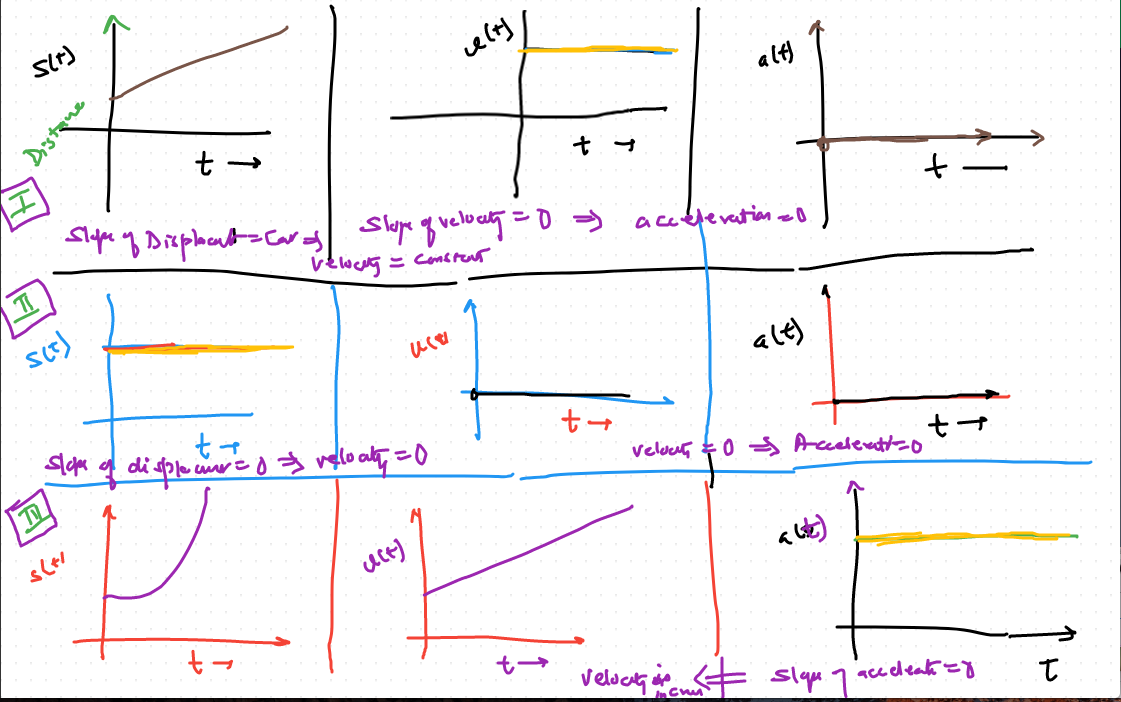 S(t)
Distane
t →
v(t)
t →
a(t)
t —
I
Slope of Displacmt = Con ⇒
velocity = constant
Slope of velocity = 0 ⇒ acceleration = 0
II
S(t)
t →
v(t)
t →
a(t)
t →
Slope of displacmr = 0 ⇒ velocity = 0
velocity = 0 ⇒ Acceleratn = 0
s(t)
t →
v(t)
t →
a(t)
t
velocity is ⇐ slope of accelerate = 0